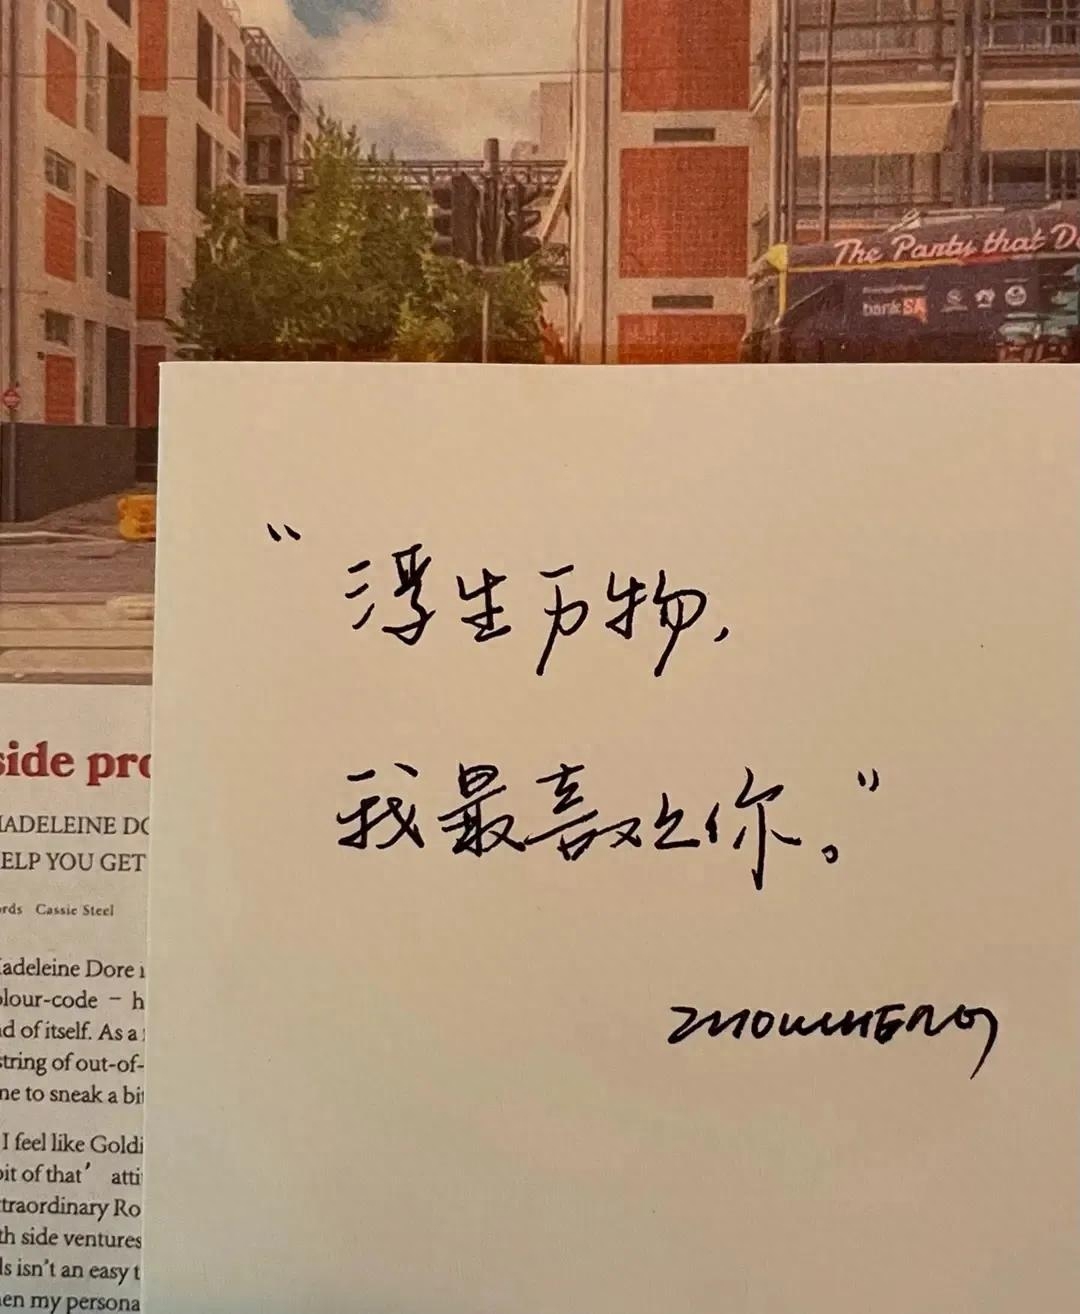 The Party that D
bankSA
“浮生万物,
我最喜欢你。”
ZHOUSHENG
side pro
MADELEINE DO
ELP YOU GET
rds Cassie Steel
adeleine Dore i
olour-code – h
d of itself. As a
string of out-of-
ne to sneak a bit
I feel like Goldi
bit of that’ atti
traordinary Ro
th side ventures
ls isn’t an easy t
en my persona